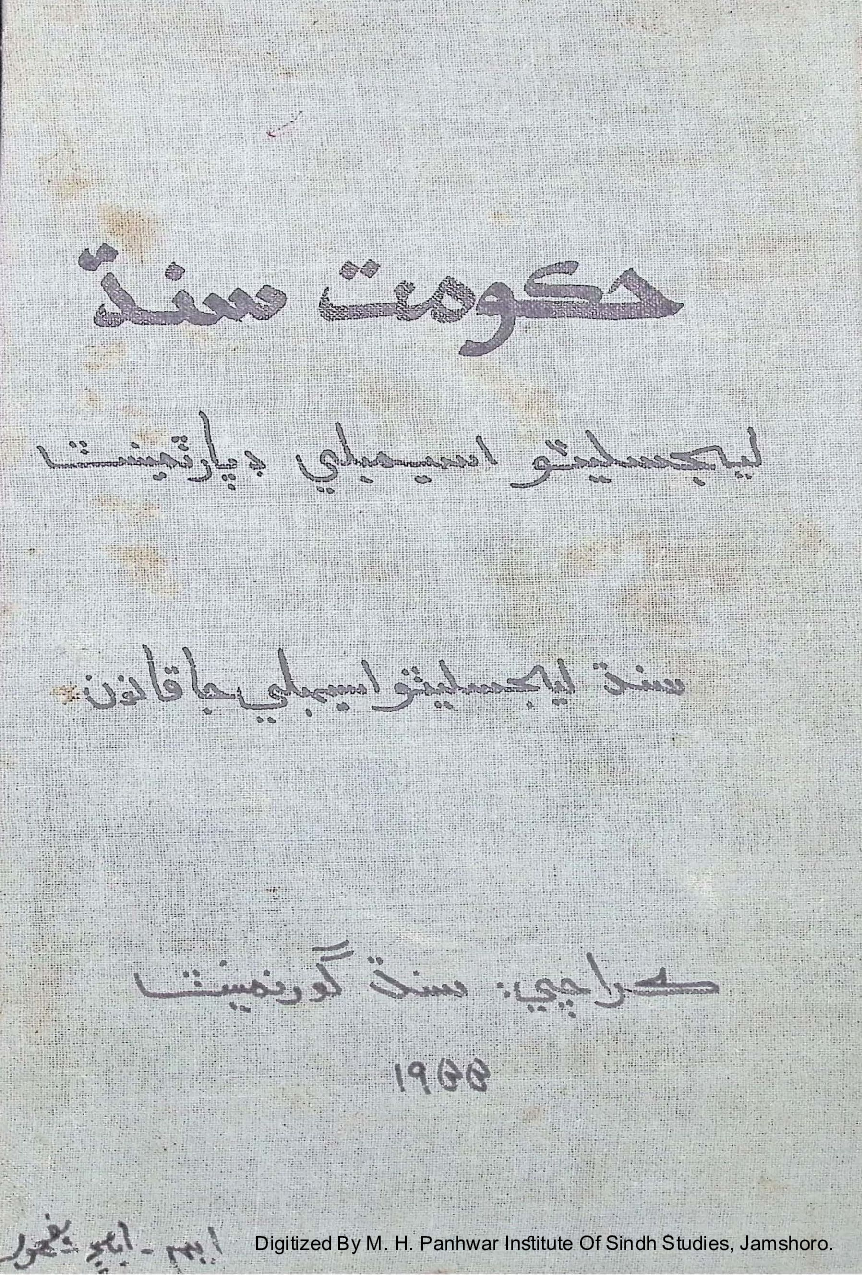 حڪومت سنڌ
ليجسليٽو اسيمبلي ڊپارٽمينٽ
سنڌ ليجسليٽو اسيمبلي جا قانون
ڪراچي: سنڌ گورنمينٽ
۱۹۵۵
ايم - ايڇ - پنهور
Digitized By M. H. Panhwar Institute Of Sindh Studies, Jamshoro.